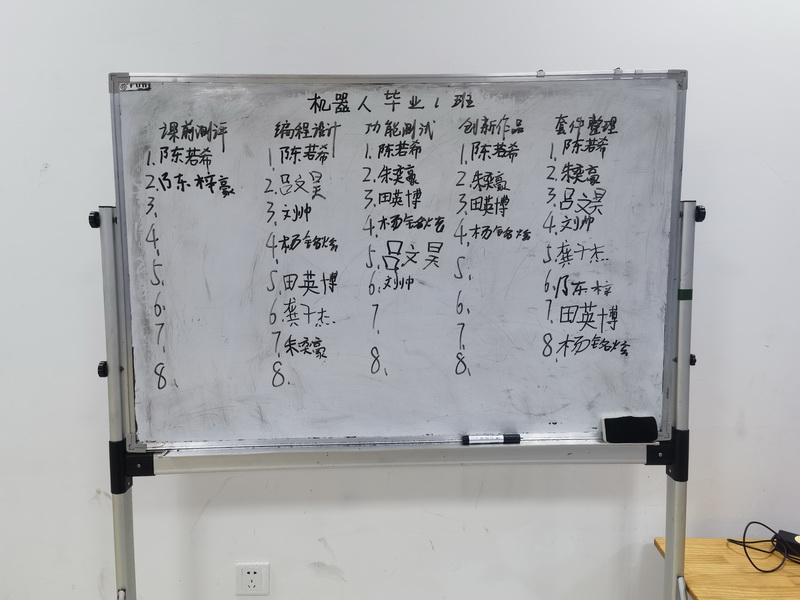 机器人毕业1班
课前测评
1.陈若希
2.陈梓豪
3.
4.
5.
6.
7.
8.
编程设计
1.陈若希
2.吕文昊
3.刘帅
4.杨铭烩
5.田英博
6.龚子杰
7.朱奕豪
8.
功能测试
1.陈若希
2.朱奕豪
3.田英博
4.杨铭烩
5.吕文昊
6.刘帅
7.
8.
创新作品
1.陈若希
2.朱奕豪
3.田英博
4.杨铭烩
5.
6.
7.
8.
套件整理
1.陈若希
2.朱奕豪
3.吕文昊
4.刘帅
5.龚子杰
6.陈梓
7.田英博
8.杨铭烩